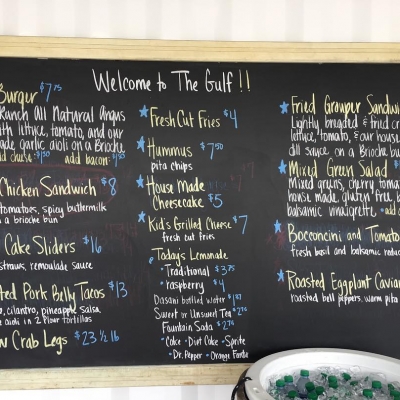 Welcome to The Gulf !!
Burger $7.75
Crunch All Natural Angus
with lettuce, tomato, and our
made garlic aioli on a Brioche
add cheese: $1.50 add bacon:
Chicken Sandwich $8
tomatoes, spicy buttermilk
on a brioche bun
Cake Sliders $16
straws, remoulade sauce
Pork Belly Tacos $13
cilantro, pineapple salsa,
aioli in 2 flour tortillas
Crab Legs $23 ½ lb
Fresh Cut Fries $4
Hummus $7.50
pita chips
House Made
Cheesecake $5
Kid's Grilled Cheese $7
fresh cut fries
Today's Lemonade
• Traditional $3.75
• raspberry $4
Dasani bottled water
Sweet or Unsweet Tea
Fountain Soda
• Coke • Diet Coke • Sprite
• Dr. Pepper • Orange Fanta
Fried Grouper Sandwi
Lightly breaded & fried
lettuce, tomato, & our house
dill sauce on a Brioche bu
Mixed Green Salad
Mixed greens, cherry toma
house made gluten free
balsamic vinaigrette
Bocconcini and Tomato
Fresh basil and balsamic reduc
Roasted Eggplant Caviar
roasted bell peppers, warm pita